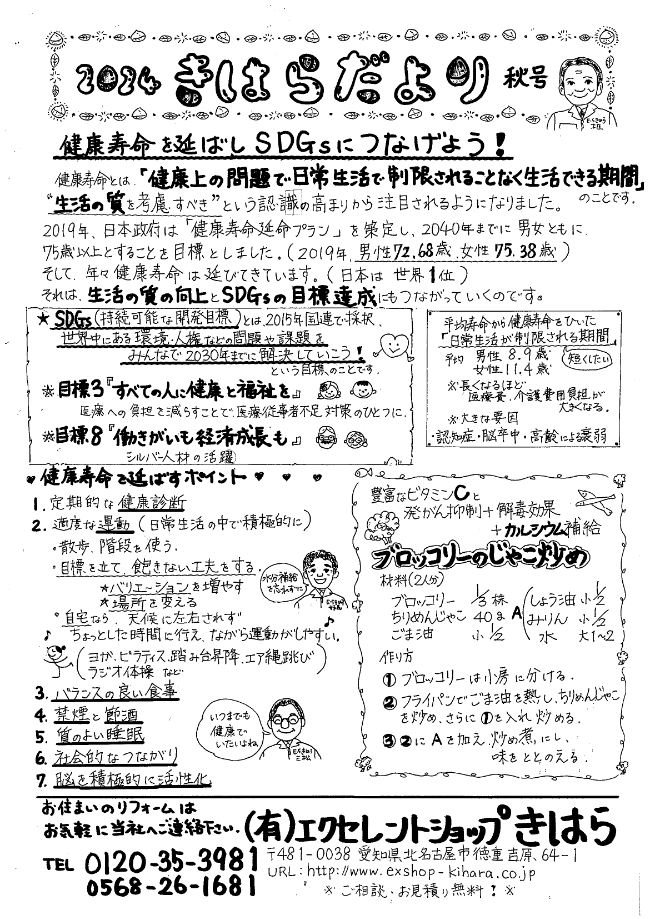 2024 きはらだより 秋号
健康寿命を延ばしSDGsにつなげよう!
健康寿命とは、「健康上の問題で日常生活で制限されることなく生活できる期間」
のことです。
"生活の質を考慮すべき"という認識の高まりから注目されるようになりました。
2019年、日本政府は「健康寿命延命プラン」を策定し、2040年までに男女ともに、
75歳以上とすることを目標としました。(2019年、男性72.68歳、女性75.38歳)
そして、年々健康寿命は延びてきています。(日本は世界1位)
それは、生活の質の向上とSDGsの目標達成にもつながっていくのです。
★SDGs(持続可能な開発目標)とは、2015年国連で採択、
世界中にある環境・人権などの問題や課題を
みんなで2030年までに解決していこう!
という目標のことです。
※目標3『すべての人に健康と福祉を』
医療への負担を減らすことで、医療従事者不足対策のひとつに。
※目標8『働きがいも経済成長も』
シルバー人材の活躍
平均寿命から健康寿命をひいた
「日常生活が制限される期間」
平均 男性 8.9歳
女性 11.4歳
短くしたい
※長くなるほど
医療費、介護費用負担が
大きくなる。
※大きな要因
・認知症・脳卒中・高齢による衰弱
♥健康寿命を延ばすポイント♥ ♥ ♥
1. 定期的な健康診断
2. 適度な運動(日常生活の中で積極的に)
・散歩、階段を使う.
・目標を立て、飽きない工夫をする.
★バリエーションを増やす
★場所を変える
水分補給
を忘れずに
・自宅なら、天候に左右されず
♪ ちょっとした時間に行え、ながら運動がしやすい。♪
(ヨガ、ピラティス、踏み台昇降、エア縄跳び
ラジオ体操 など)
3. バランスの良い食事
4. 禁煙と節酒
5. 質のよい睡眠
6. 社会的なつながり
7. 脳を積極的に活性化
いつまでも
健康で
いたいよね
豊富なビタミンCと
発がん抑制+解毒効果
+カルシウム補給
ブロッコリーのじゃこ炒め
材料(2人分)
ブロッコリー 1/3株
ちりめんじゃこ 40g
ごま油 小1/2
A(しょう油 小1/2
みりん 小1/2
水 大1~2)
作り方
①ブロッコリーは小房に分ける.
②フライパンでごま油を熱し、ちりめんじゃこ
を炒め、さらに①を入れ炒める.
③②にAを加え、炒め煮にし、
味をととのえる.
お住まいのリフォームは
お気軽に当社へご連絡下さい.
(有)エクセレントショップきはら
TEL 0120-35-3981
0568-26-1681
〒481-0038 愛知県北名古屋市徳重吉原、64-1
URL:http://www.exshop-kihara.co.jp
※ご相談・お見積り無料!※